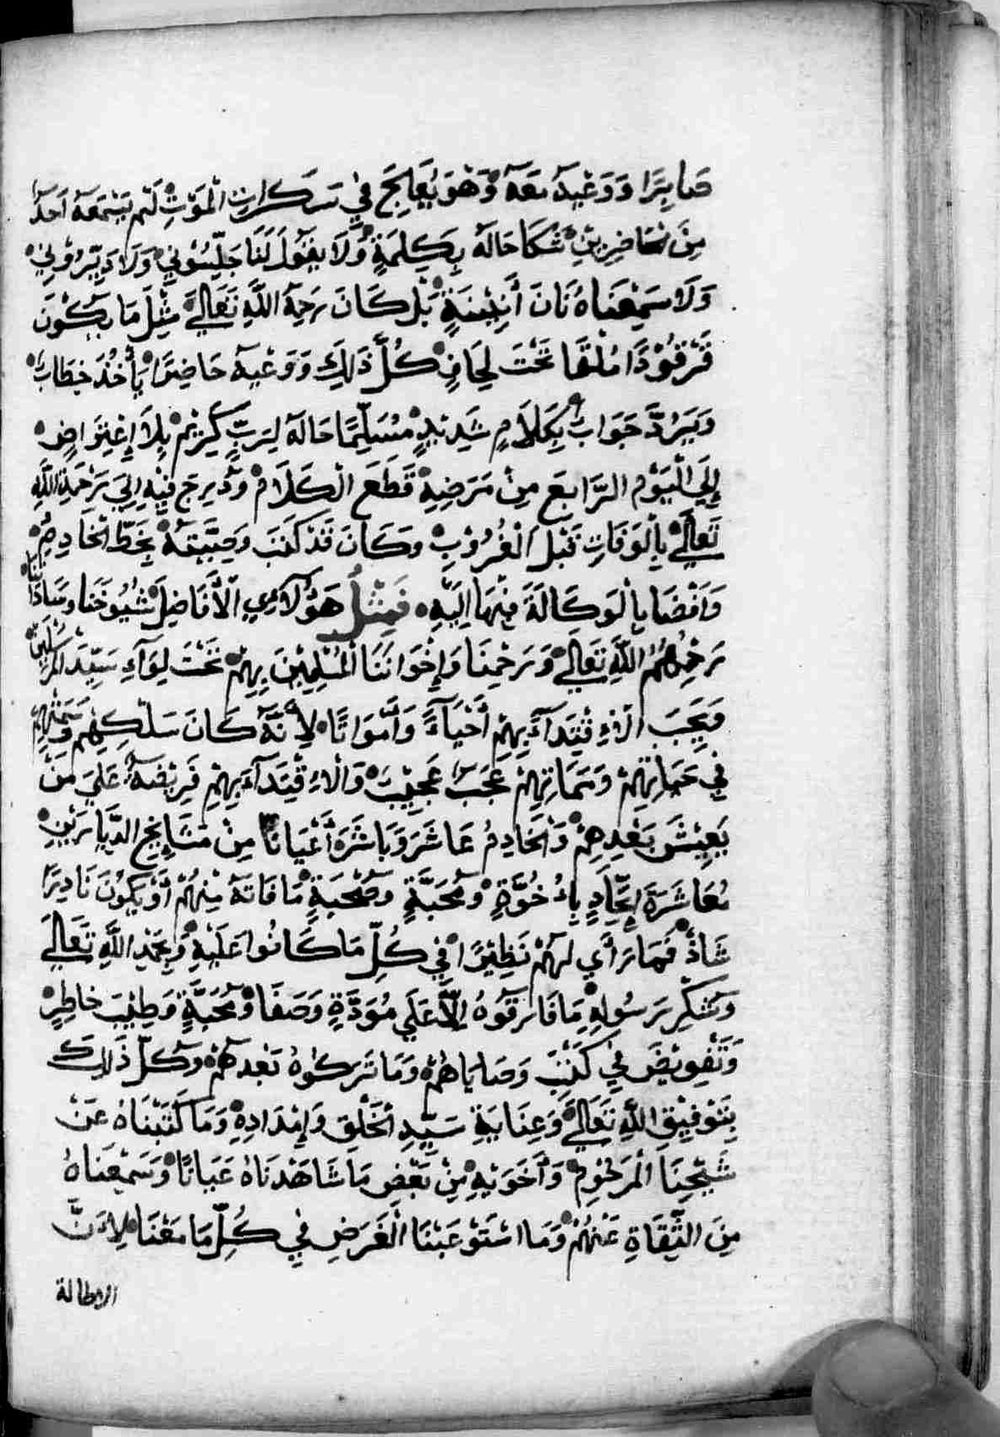 صَابِرًا وَوَعْيَهُ مَعَهُ وَهُوَ يُعَالِجُ فِي سَكَرَاتِ الْمَوْتِ لَمْ يَسْمَعَهُ اَحَدًا
مِنَ الحَاضِرِينِ شَكَا حَالَهُ بِكَلِمَةٍ وَلَا يَقُولَ لَنَا جَلِّسُونِي وَلَا دَيِّرُونِي
وَلَا سَمِعْنَاهُ نَانَ أَنِيْنَةٍ بَلْ كَانَ رَحِمَهُ اللَّهِ تَعَالَي مِثْلَ مَا يَكُونَ
مَرْقُوْدًا مُلْقَا تَحْتَ لِحَافٍ كُلَّ ذَلِكَ وَوَعْيَهُ حَاضِرًا يَأْخُذَ خِطَابْ
وَيَرُدَّ جَوَابْ بِكَلَامٍ شَدِيْدٍ مُسَلِّمًا حَالَهُ لِرَبٍّ كَرِيْمٍ بِلَا إِعْتِرَاضٍ
إِلَي الْيَوْمِ الرَّابِعَ مِنْ مَرَضِهِ قَطَعَ الْكَلَامْ وَدُّرِجَ فِيْهِ اِلَي رَحْمَةِ اللَّهِ
تَعَالَي بِالْوَفَاتِ قَبْلَ الْغُرُوْبِ وَكَانَ قَدْ كَتَبَ وَصِيَّتَهُ بِخَطِّ الْخَادِمْ
وَافْضَا بِالْوَكَالَةَ مِنْهَا اِلَيْهِ فَمِثْلُ هَؤُلَاءِ الْأَفَاضِلَ شُيُوْخَنَا وَسَادَاتُنَا
رَحِمُهُمُ اللَّهِ تَعَالَي وَرَحِمْنَا وَإِخْوَانَنَا الْمُسْلِمِيْنَ بِهِمْ تَحْتَ لِوَآءِ سَيِّدَ الْمُرْسَلِيْنَ
وَيَجِبَ الْاِقْتِدَآءُ بِهِمْ أَحْيَآءً وَأَمْوَاتًا لِأَنَّهُ كَانَ سَلْكِهِمْ وَسَمْتِهِمْ
فِي حَيَاتِهِمْ وَمَمَاتِهِمْ عَجَبًا عَجِيْبْ وَالْاِقْتِدَآءُ بِهِمْ فَرِيْضَةً عَلَي مَنْ
يَعِيْشَ بَعْدِهِمْ وَالْخَادِمُ عَاشَرَ وَبَاشَرَ أَعْيَانًا مِنْ مَشَايِخِ الدِّيَارَيْنِ
مُعَاشَرَةَ إِتِّحَادٍ بِاُخُوَّةٍ وَمُحَبَّةٍ وَصُحْبَةٍ مَا فَاتَهُ مِنْهُمْ أَوْ يَكُوْنَ نَادِرًا
شَاذْ فَمَا رَأَي لَهُمْ نَظِيْرًا فِي كُلِّ مَا كَانُوا عَلَيْهِ وَبِحَمْدِ اللَّهِ تَعَالَي
وَشُكْرِ رَسُولِهِ مَا فَارَقُوهُ اِلَّا عَلَي مُوَدَّةٍ وَصَفَا وَمُحَبَّةٍ وَطِيْبَ خَاطِرٍ
وَتَفْوِيْضَ فِي كَتْبَ وَصَايَاهُمْ وَمَا تَرَكُوْهُ بَعْدَهُمْ وَكُلَّ ذَلِكَ
بِتَوْفِيْقِ اللَّهِ تَعَالَي وَعِنَايَةِ سَيِّدِ الْخَلْقِ وَإِمْدَادِهِ وَمَا كَتَبْنَاهُ عَنْ
شَيْخِنَا الْمَرْحُوْمِ وَأَخَوَيْهِ مِنْ بَعْضِ مَا شَاهَدْنَاهُ عَيَانًا وَسَمِعْنَاهُ
مِنَ الثِّقَاةِ عَنْهُمْ وَمَا اسْتَوْعَبْنَا الْغَرَضِ فِي كُلِّ مَا مَعْنَا لِاَنَّ
الاطالة